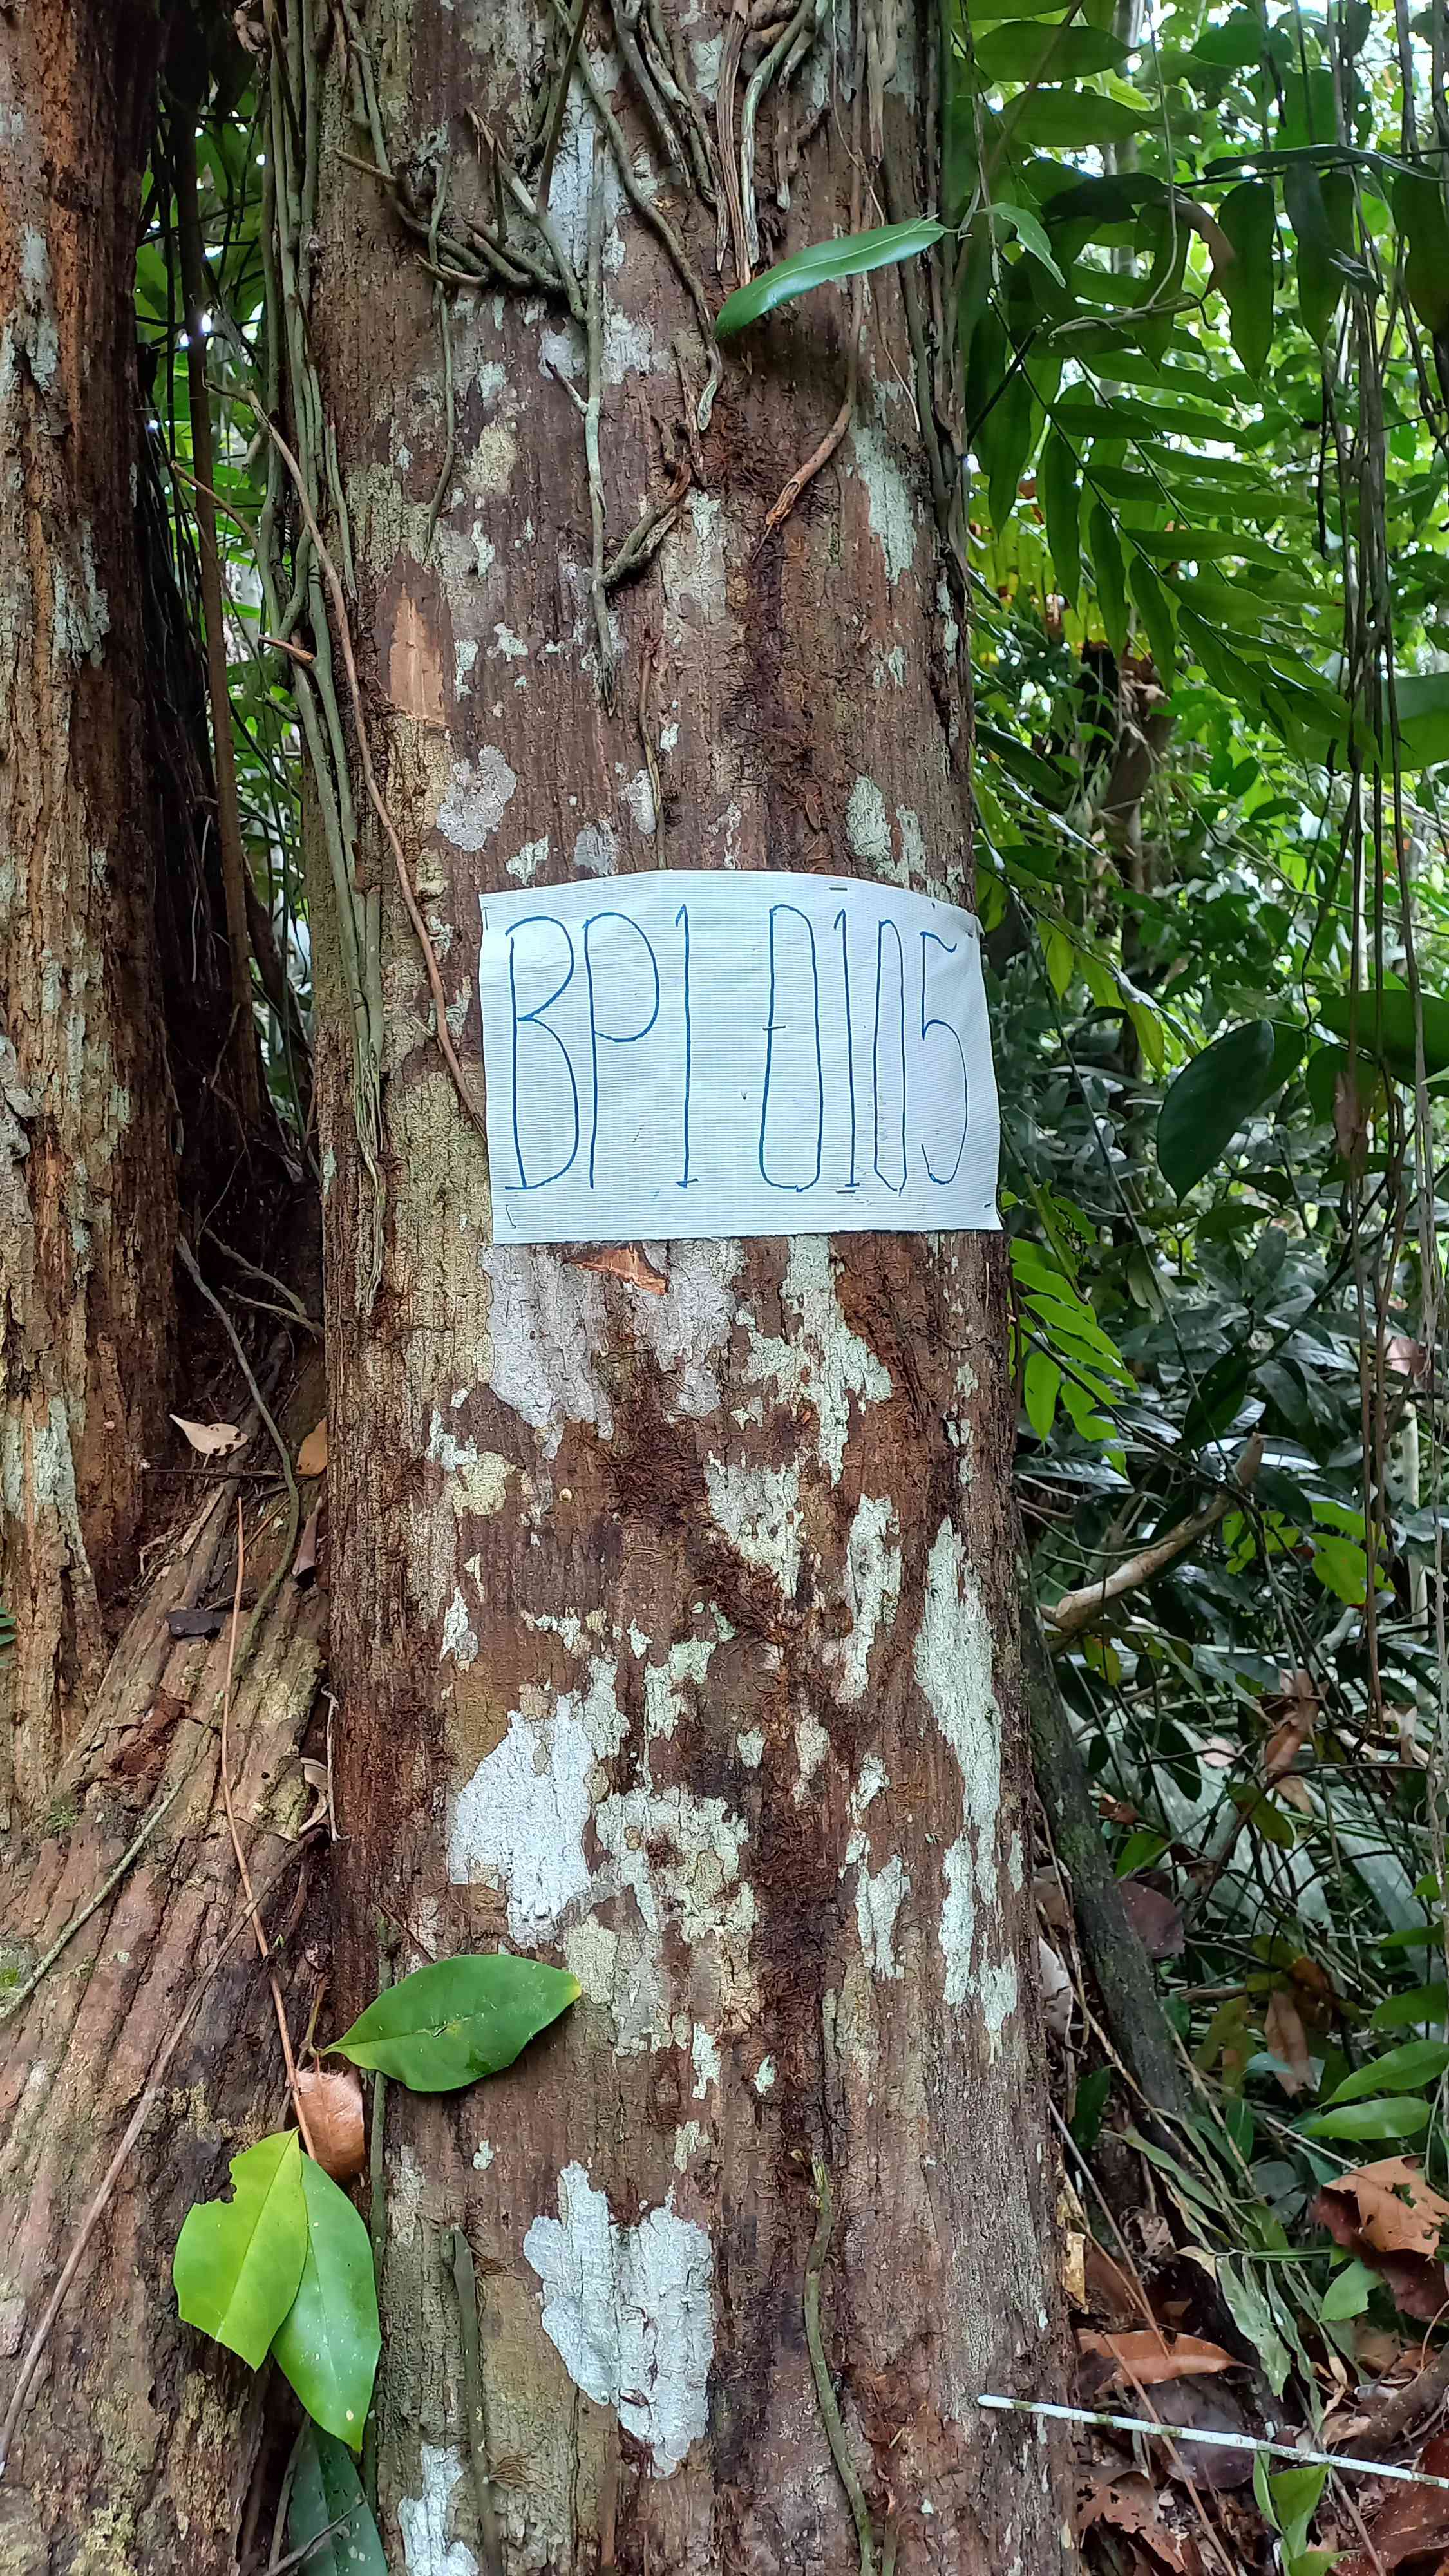 BP1 0105